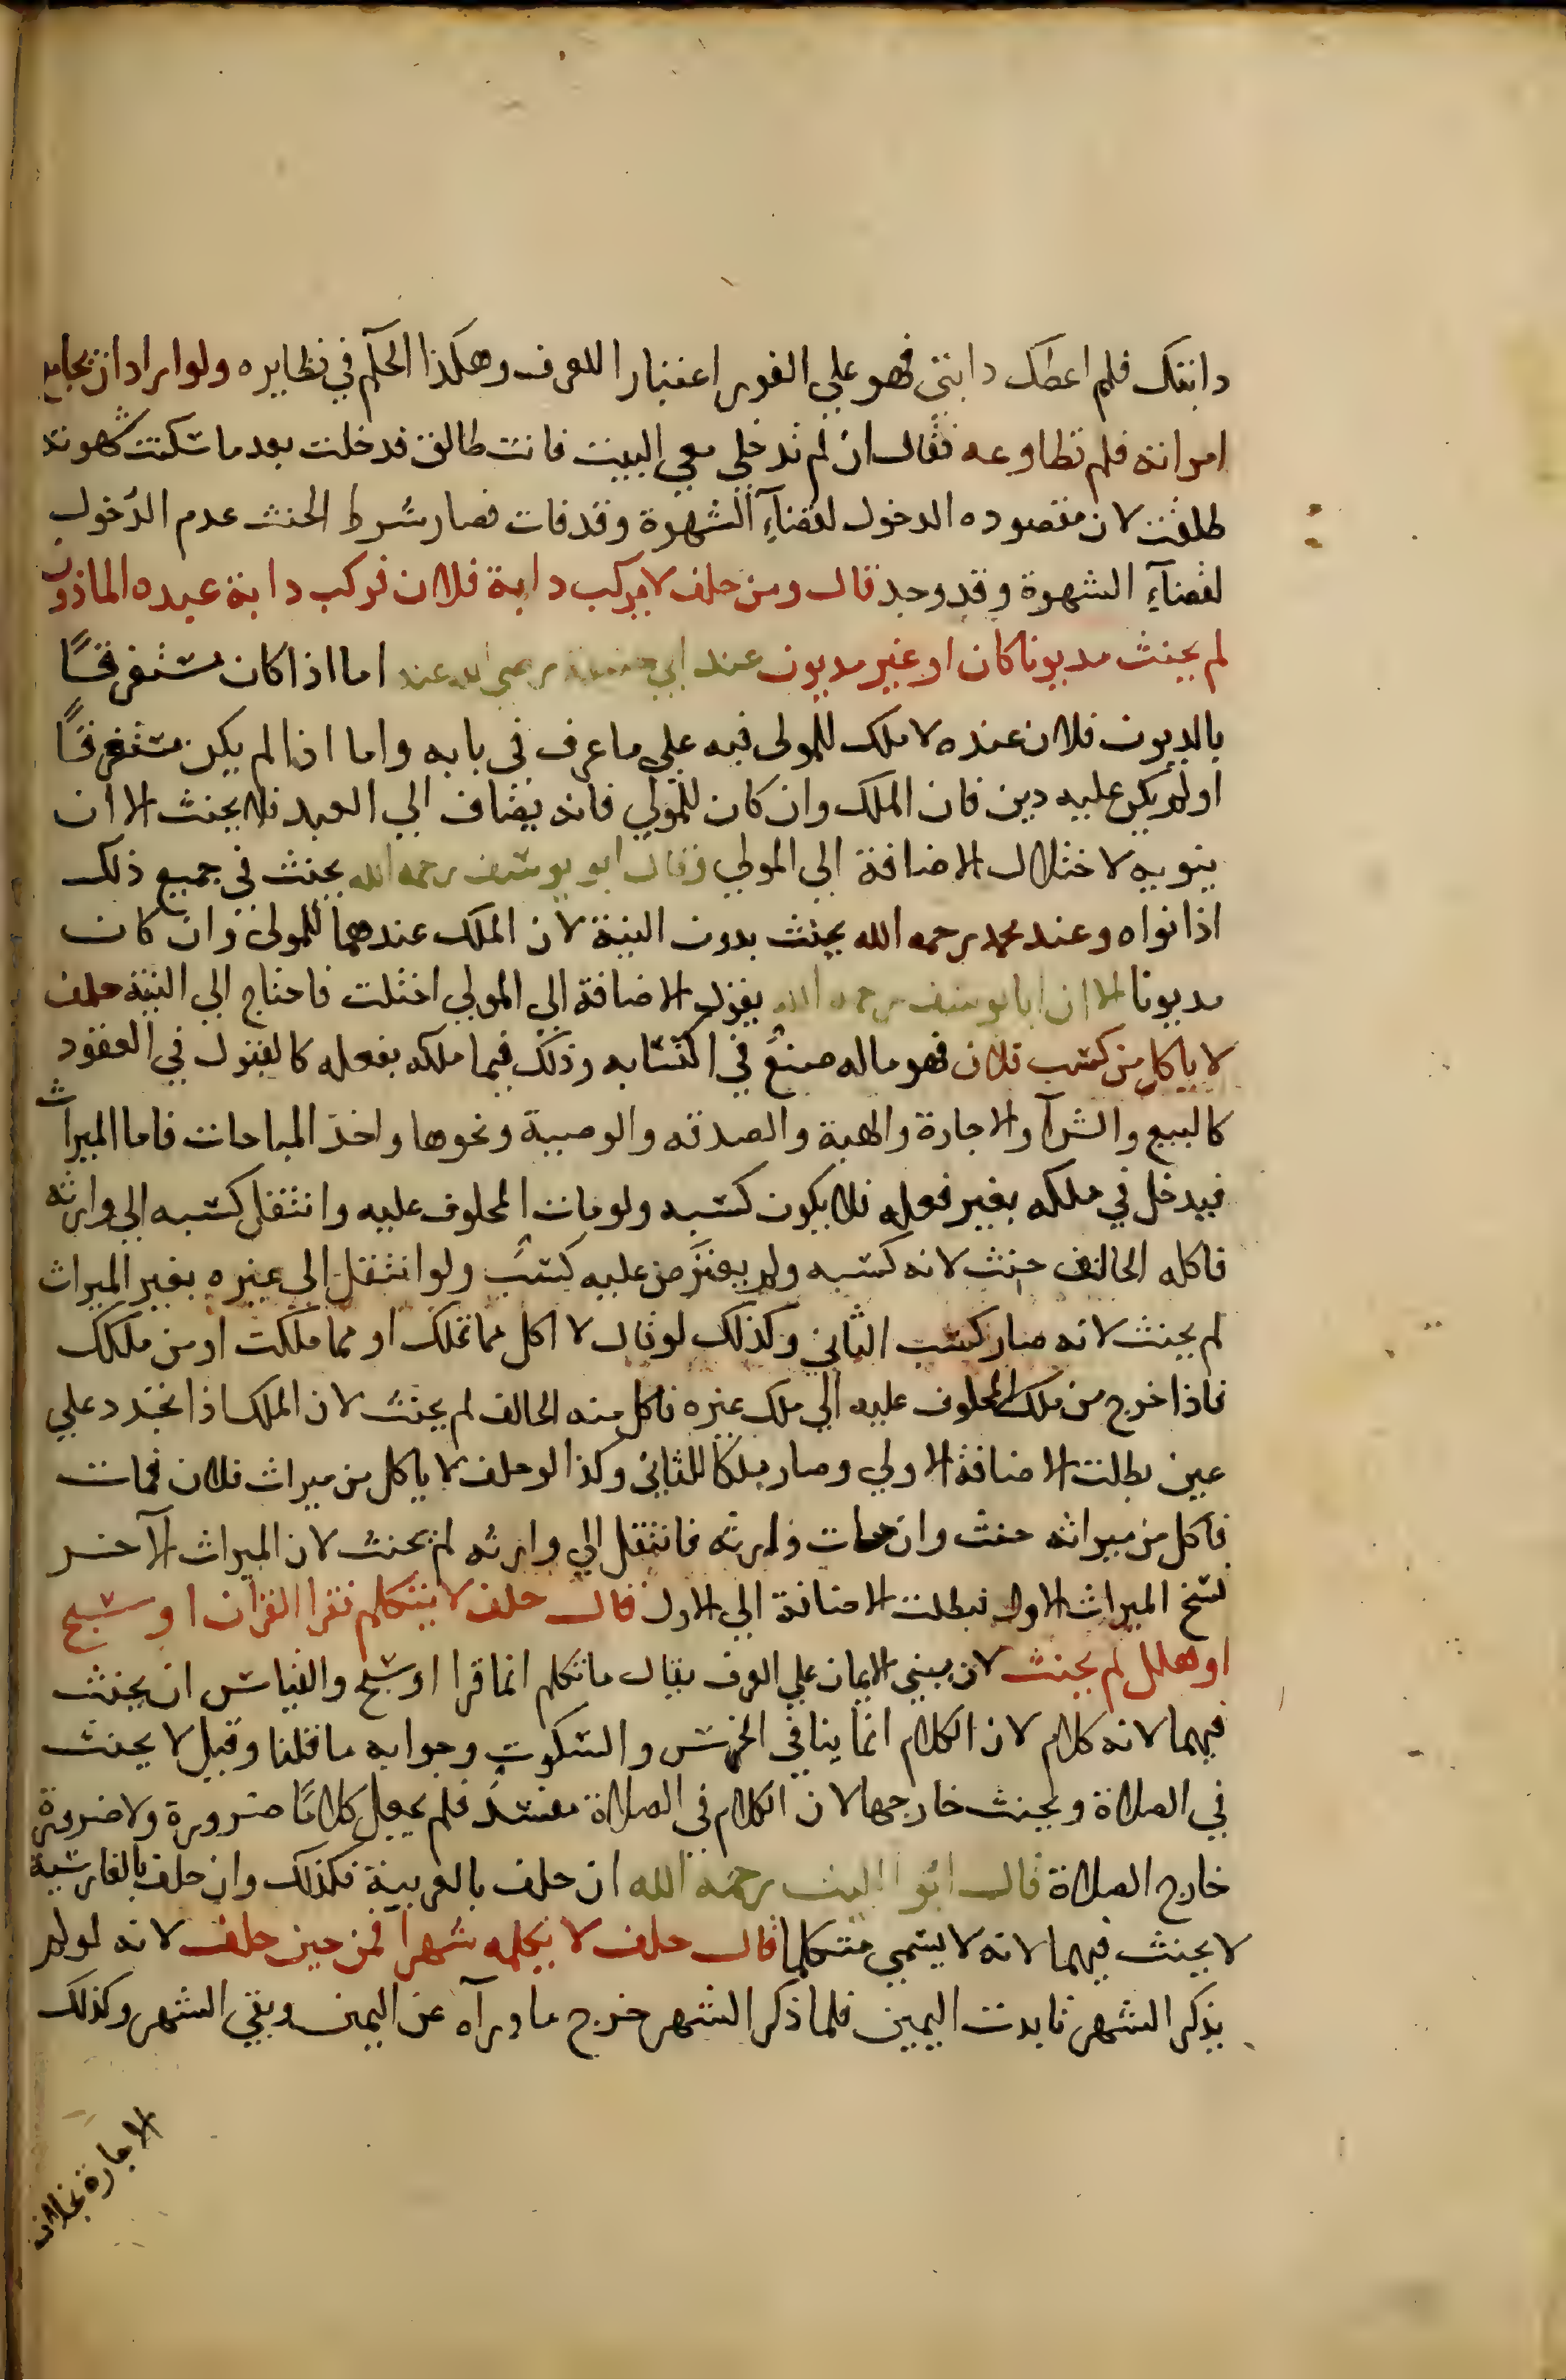 دابتك فلم اعطك دابتي فهو علي الفور اعتبارا للعرف وهكذا الحكم في نظايره ولو اراد ان يجامع
امراته فلم تطاوعه فقال ان لم تدخلي معي البيت فانت طالق فدخلت بعدما سكنت شهوته
طلقت لان مقصوده الدخول لقضآء الشهوة وقد فات فصار شرط الحنث عدم الدخول
لقضآء الشهوة وقد وجد قال ومن حلف لا يركب دابة فلان فركب دابة عبده الماذون
لم يحنث مديونا كان او غير مديون عند ابي حنيفة رضي الله عنه اما اذا كان مستغرقًا
بالديون فلان عنده لا ملك للمولى فيه علي ما عرف في بابه واما اذا لم يكن مستغرقًا
اولم يكن عليه دين فان الملك وان كان للمولي فانه يضاف الي العبد فلا يحنث الا ان
ينويه لاختلال الاضافة الي المولي وقال ابو يوسف رحمه الله يحنث في جميع ذلك
اذا نواه وعند محمد رحمه الله يحنث بدون النية لان الملك عندهما للمولى وان كان
مديونا الا ان ابا يوسف رحمه الله يقول الاضافة الي المولي اختلت فاحتاج الي النية حلف
لا ياكل من كسب فلان فهو ماله صنعٌ في اكتسابه وذلك فيما ملكه بفعله كالقبول في العقود
كالبيع والشرآ والاجارة والهبة والصدقه والوصية ونحوها واخذ المباحات فاما الميراث
فيدخل في ملكه بغير فعله فلا يكون كسبه ولو مات المحلوف عليه وانتقل كسبه الي وارثه
فاكله الحالف حنث لانه كسبه ولم يعترض عليه كسبٌ ولو انتقل الي غيره بغير الميراث
لم يحنث لانه صار كسب الثاني وكذلك لو قال لا اكل مما تملك او مما ملكت او من ملكك
فاذا خرج من ملك المحلوف عليه الي ملك غيره فاكل منه الحالف لم يحنث لان الملك اذا تجدد علي
عين بطلت الاضافة الاولي وصار ملكا للثاني وكذا لو حلف لا ياكل من ميراث فلان فمات
فاكل من ميراثه حنث وان مات وارثه فانتقل الي وارثه لم يحنث لان الميراث الآخر
نسخ الميراث الاول فبطلت الاضافة الي الاول قال حلف لا يتكلم فقرا القران او سبح
او هلل لم يحنث لان مبني الايمان علي العرف يقال ما تكلم انما قرا او سبح والقياس ان يحنث
فيهما لانه كلام لان الكلام انما ينافي الخرس والسكوت وجوابه ما قلنا وقيل لا يحنث
في الصلاة ويحنث خارجها لان الكلام في الصلاة مفسدٌ فلم يجعل كلامًا ضرورة ولا ضرورة
خارج الصلاة قال ابو الليث رحمه الله ان حلف بالعربية فكذلك وان حلف بالفارسية
لا يحنث فيهما لانه لا يسمي متكلما قال حلف لا يكلمه شهرا فمن حين حلف لانه لو لم
يذكر الشهر تابدت اليمين فلما ذكر الشهر خرج ما ورآه عن اليمين وبقي الشهر وكذلك
الاجارة بخلاف